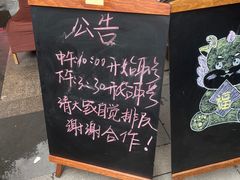 公告
中午10:00开始取号
下午3:30开始取号
请大家自觉排队
谢谢合作!
福